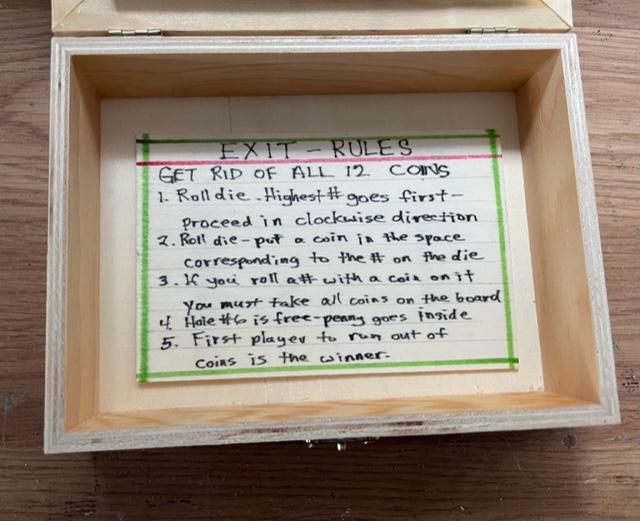 EXIT - RULES
GET RID OF ALL 12 COINS
1. Roll die. Highest # goes first-
Proceed in clockwise direction
2. Roll die - put a coin in the space
corresponding to the # on the die
3. If you roll a # with a coin on it
You must take all coins on the board
4. Hole #6 is free-penny goes inside
5. First player to run out of
coins is the winner.